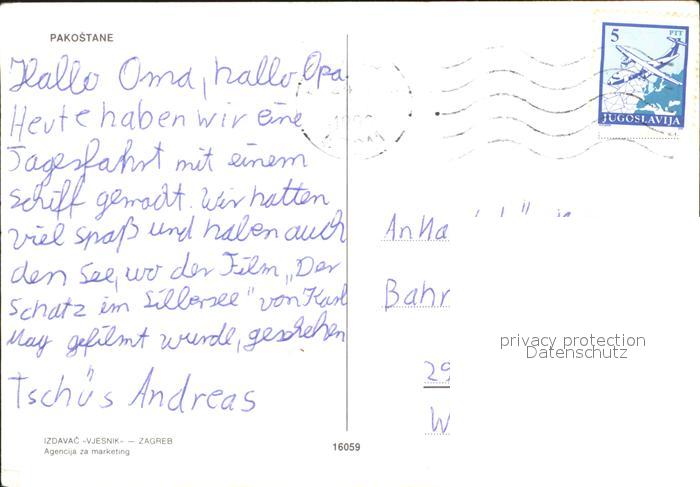 PAKOŠTANE
5 PTT
JUGOSLAVIJA
Hallo Oma, hallo Opa
Heute haben wir eine
Tagesfahrt mit einem
Schiff gemacht. Wir hatten
viel spaß und haben auch
den See, wo der Film „Der
Schatz im Silbersee" von Karl
May gefilmt wurde, geschehen
Tschüs Andreas
Bahr
privacy protection
Datenschutz
29
W
IZDAVAČ «VJESNIK» — ZAGREB
Agencija za marketing
16059